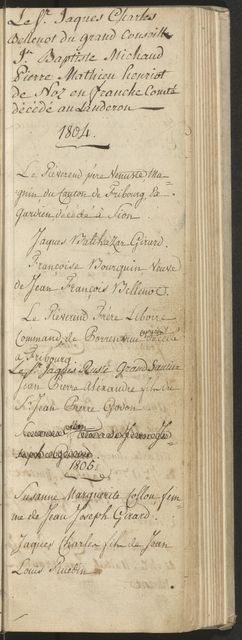 Le Sr. Jaques Charles
Bellenot du grand Conseille
Jn. Baptiste Michaud
Pierre Mathieu henriot
de Noz en franche Comté
décédé au Landeron
1804.
Le Réverend père Venuste Ma-
gnin, du Canton de Fribourg, Ex
Gardien décédé à Sion
Jaques Balthazar Girard.
Françoise Bourquin Veuve
de Jean François Bellenot
Le Réverend Frère Liboire
Command de décédé
à Fribourg
Le Sr. Jaques Rusé Grand Sautier
Jean Pierre Alexandre fils du
Sr Jean Pierre Godon
1806.
Susanne Marguerite Collou fem-
me de Jean Joseph Girard.
Jaques Charles fils de Jean
Louis Ruedin